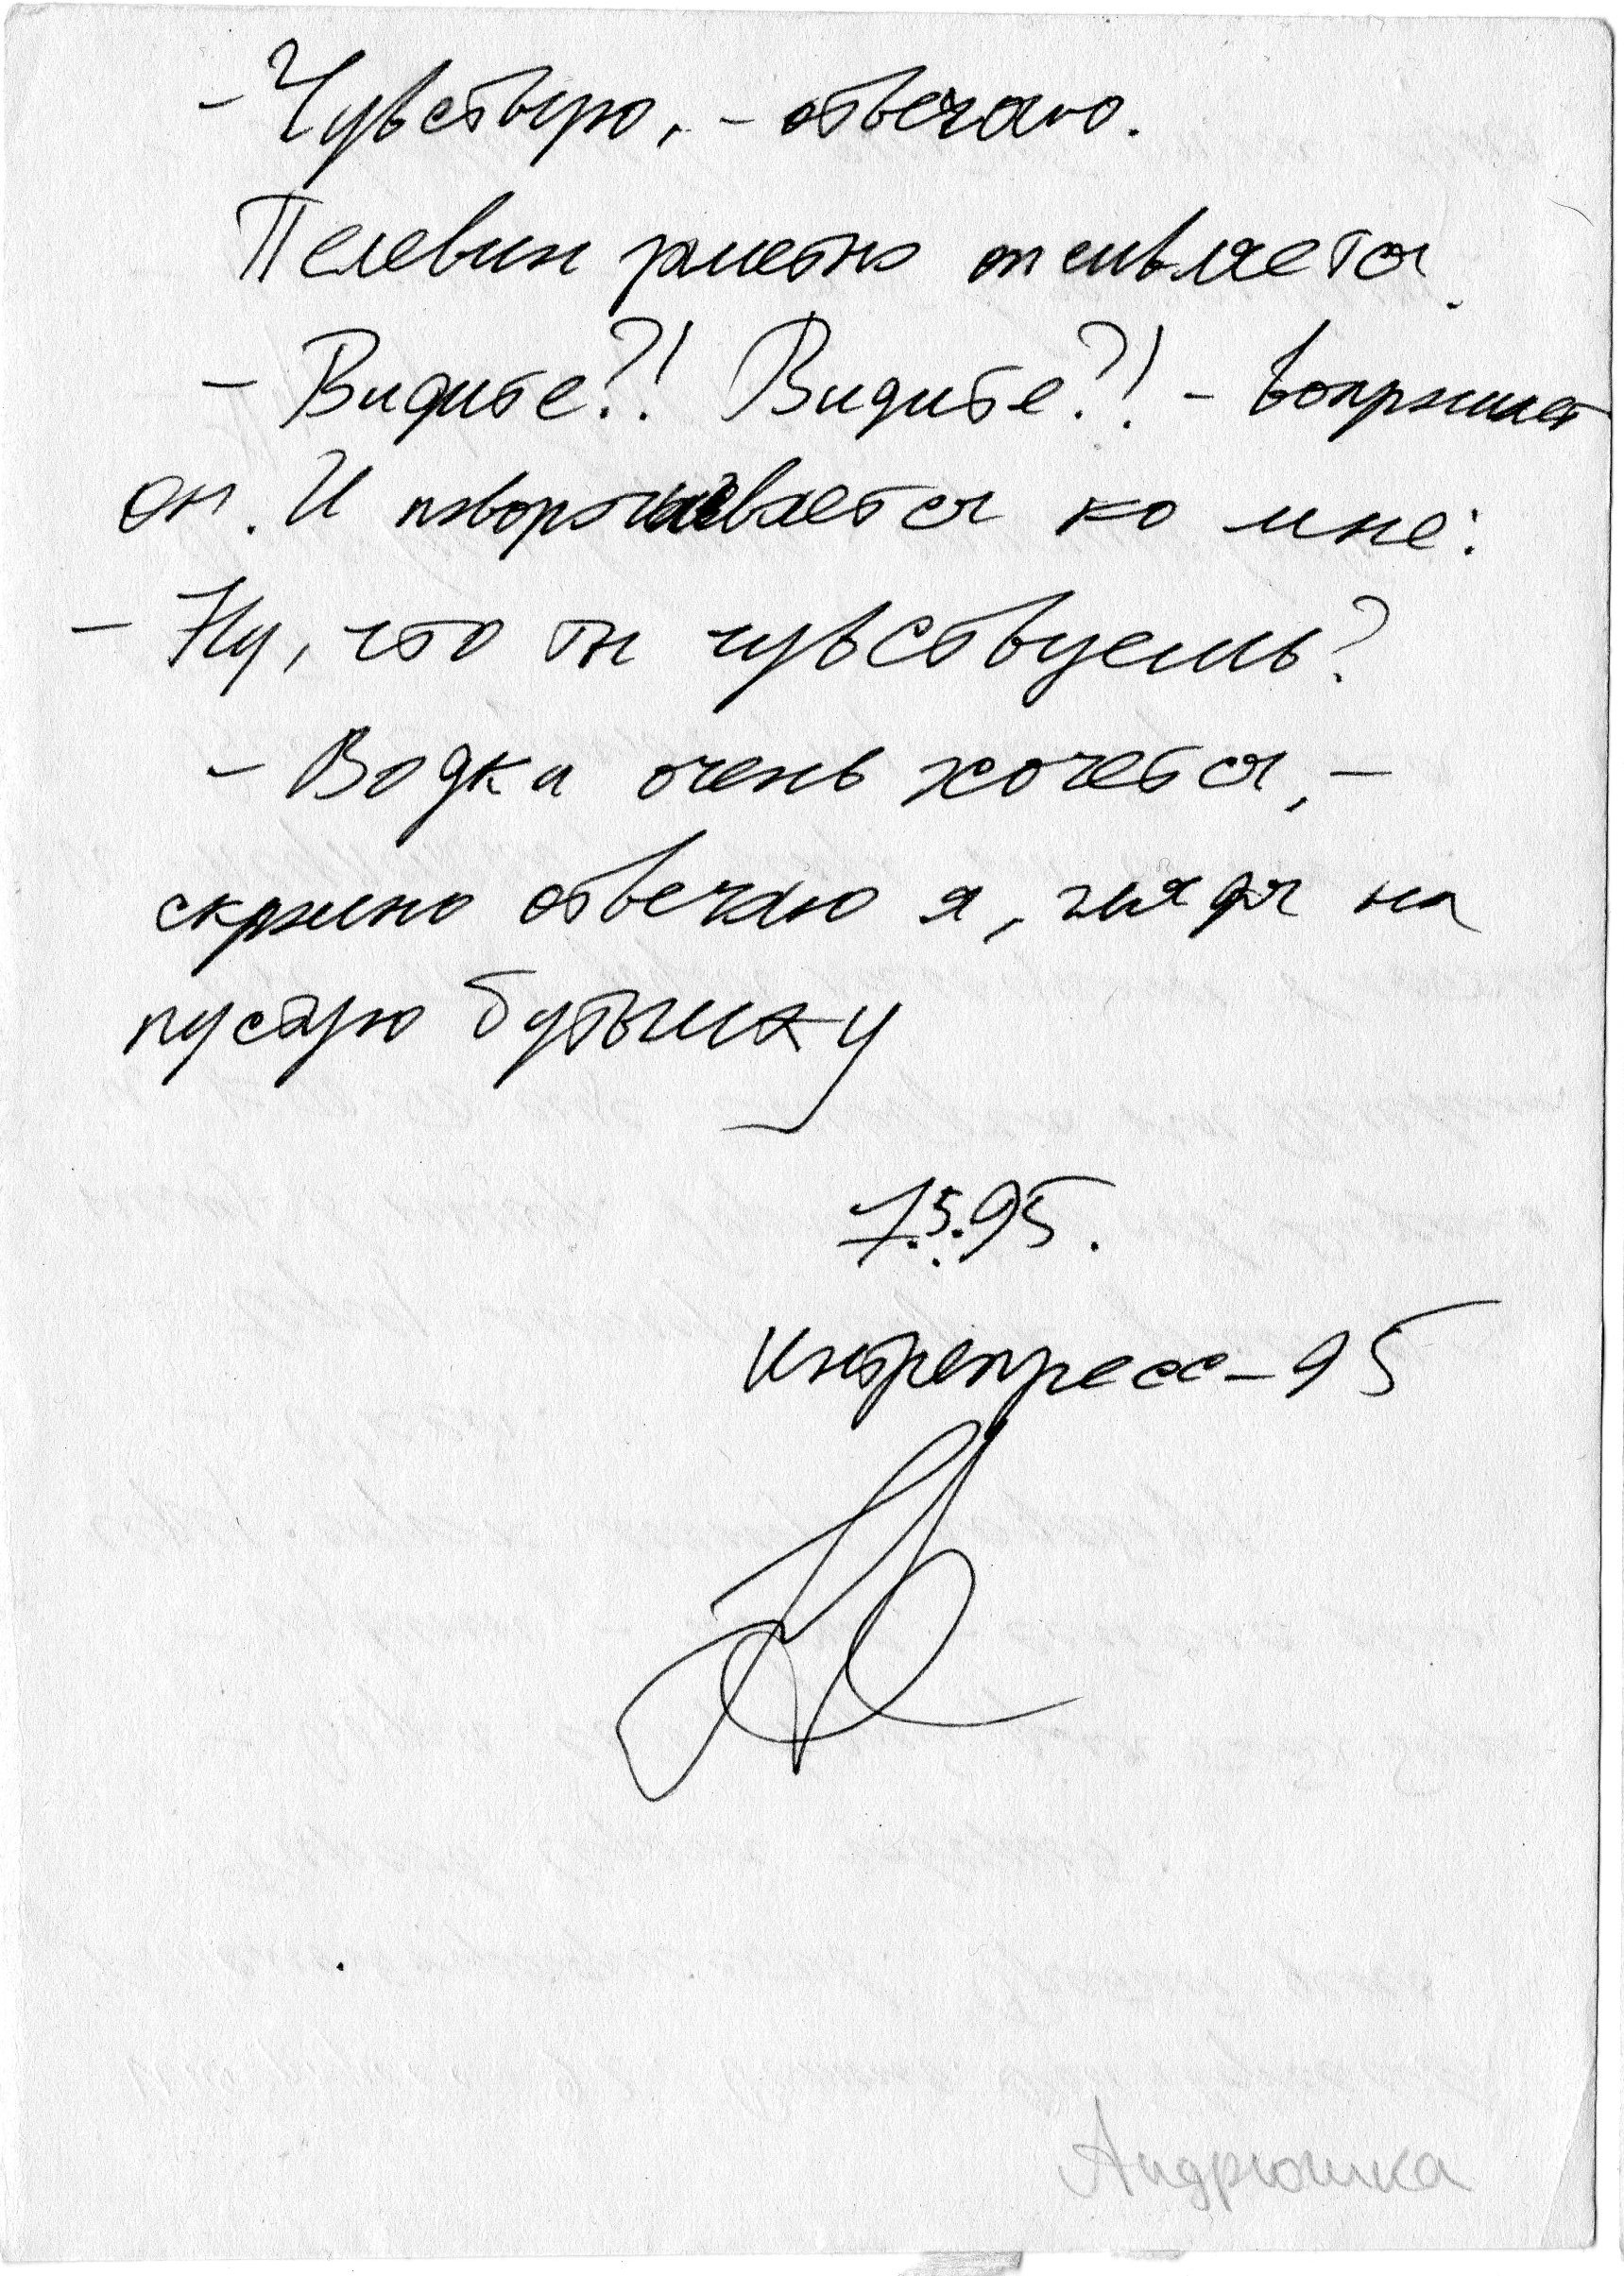 - Чувствую, - отвечаю.
Пелевин заметно оживляется.
- Видите?! Видите?! - вопрошает
он. И поворачивается ко мне:
- Ну, что ты чувствуешь?
- Водки очень хочется, -
скромно отвечаю я, глядя на
пустую бутылку
7.5.95.
Интерпресс-95
Андрюшка